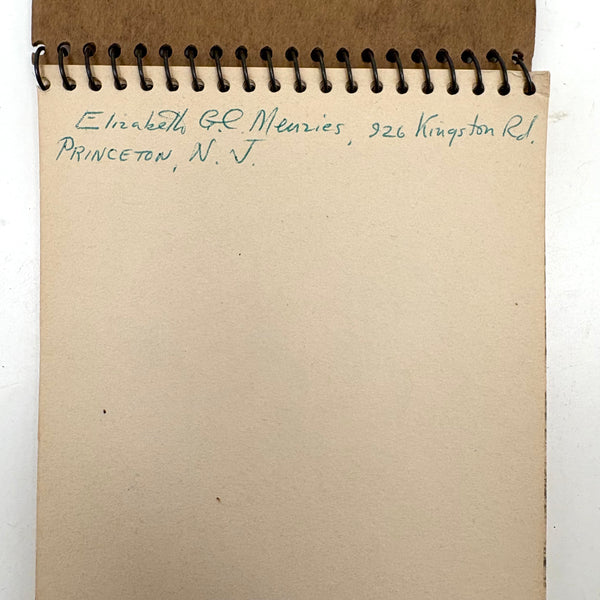 Elizabeth G.C. Menzies, 926 Kingston Rd.
PRINCETON, N. J.